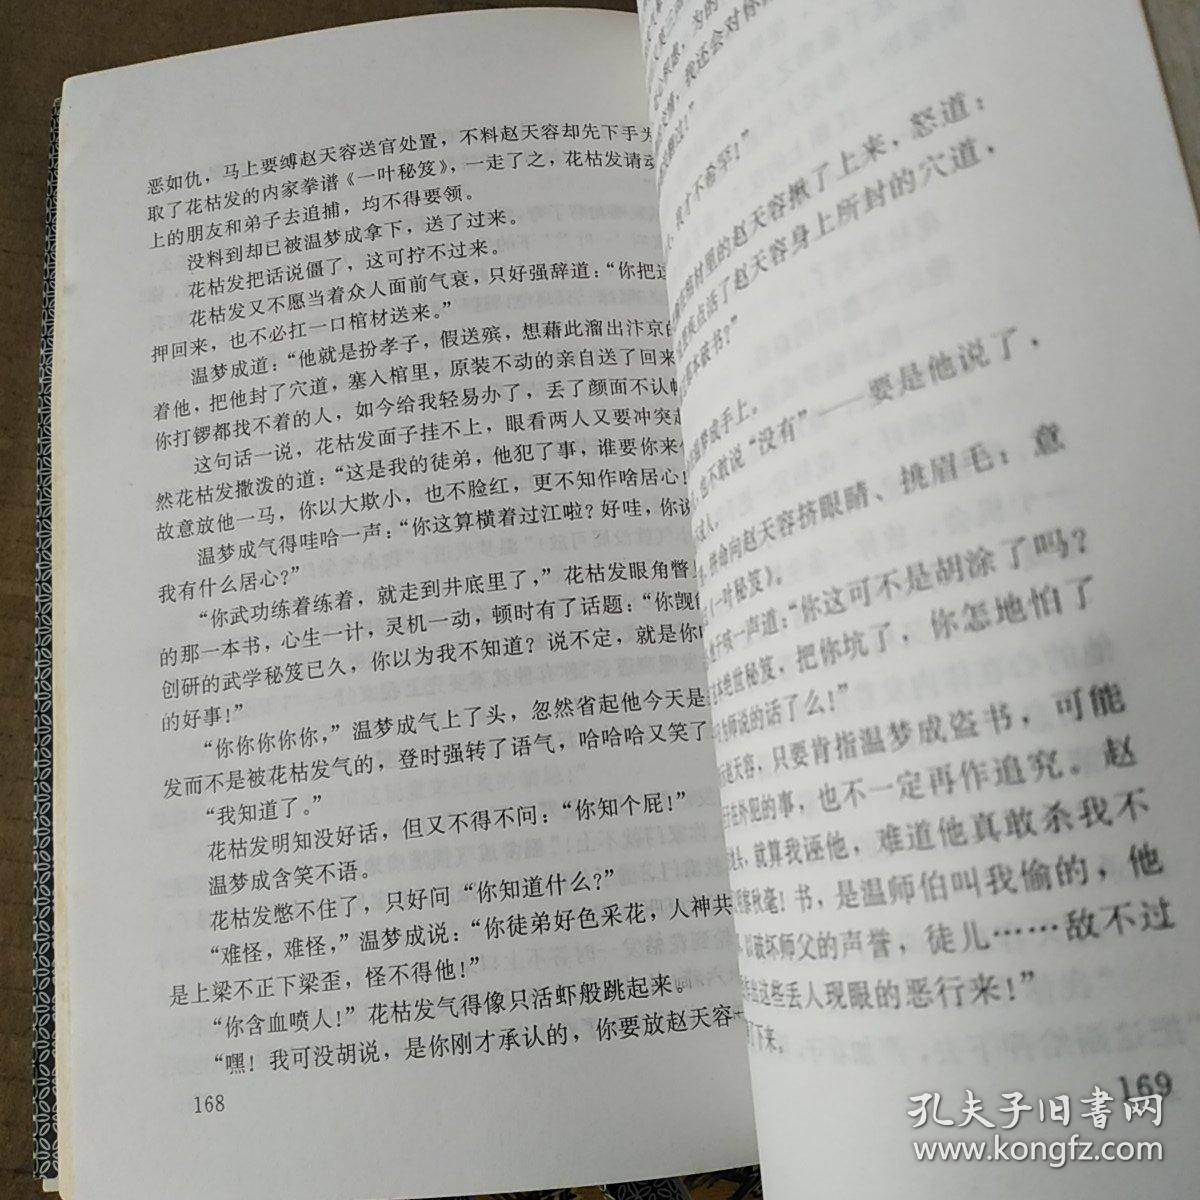 恶如仇，马上要缚赵天容送官处置，不料赵天容却先下手为
取了花枯发的内家拳谱《一叶秘笈》，一走了之，花枯发请动
上的朋友和弟子去追捕，均不得要领。
没料到却已被温梦成拿下，送了过来。
花枯发把话说僵了，这可拧不过来。
花枯发又不愿当着众人面前气衰，只好强辞道：“你把这
押回来，也不必扛一口棺材送来。”
温梦成道：“他就是扮孝子，假送殡，想藉此溜出汴京的
着他，把他封了穴道，塞入棺里，原装不动的亲自送了回来
你打锣都找不着的人，如今给我轻易办了，丢了颜面不认帐
这句话一说，花枯发面子挂不上，眼看两人又要冲突起
然花枯发撒泼的道：“这是我的徒弟，他犯了事，谁要你来
故意放他一马，你以大欺小，也不脸红，更不知作啥居心！
温梦成气得哇哈一声：“你这算横着过江啦？好哇，你说
我有什么居心？”
“你武功练着练着，就走到井底里了，”花枯发眼角瞥
的那一本书，心生一计，灵机一动，顿时有了话题：“你觊
创研的武学秘笈已久，你以为我不知道？说不定，就是你
的好事！”
“你你你你你，”温梦成气上了头，忽然省起他今天是
发而不是被花枯发气的，登时强转了语气，哈哈哈又笑了
“我知道了。”
花枯发明知没好话，但又不得不问：“你知个屁！”
温梦成含笑不语。
花枯发憋不住了，只好问“你知道什么？”
“难怪，难怪，”温梦成说：“你徒弟好色采花，人神共
是上梁不正下梁歪，怪不得他！”
“你含血喷人！”花枯发气得像只活虾般跳起来。
“嘿！我可没胡说，是你刚才承认的，你要放赵天容
168
我还会对你
才不希罕！”
材里的赵天容揪了上来，怒道：
点活了赵天容身上所封的穴道，
本破书？”
梦成手上。
也不敢说“没有”——要是他说了，
命向赵天容挤眼睛、挑眉毛：意
一叶秘笈》。
咳一声道：“你这可不是胡涂了吗？
秘笈，把你坑了，你怎地怕了
师说的话了么！”
赵天容，只要肯指温梦成盗书，可能
在外犯的事，也不一定再作追究。赵
就算我诬他，难道他真敢杀我不
秋毫！书，是温师伯叫我偷的，他
以破坏师父的声誉，徒儿……敌不过
出这些丢人现眼的恶行来！”
下来。
169
孔夫子旧书网
www.kongfz.com